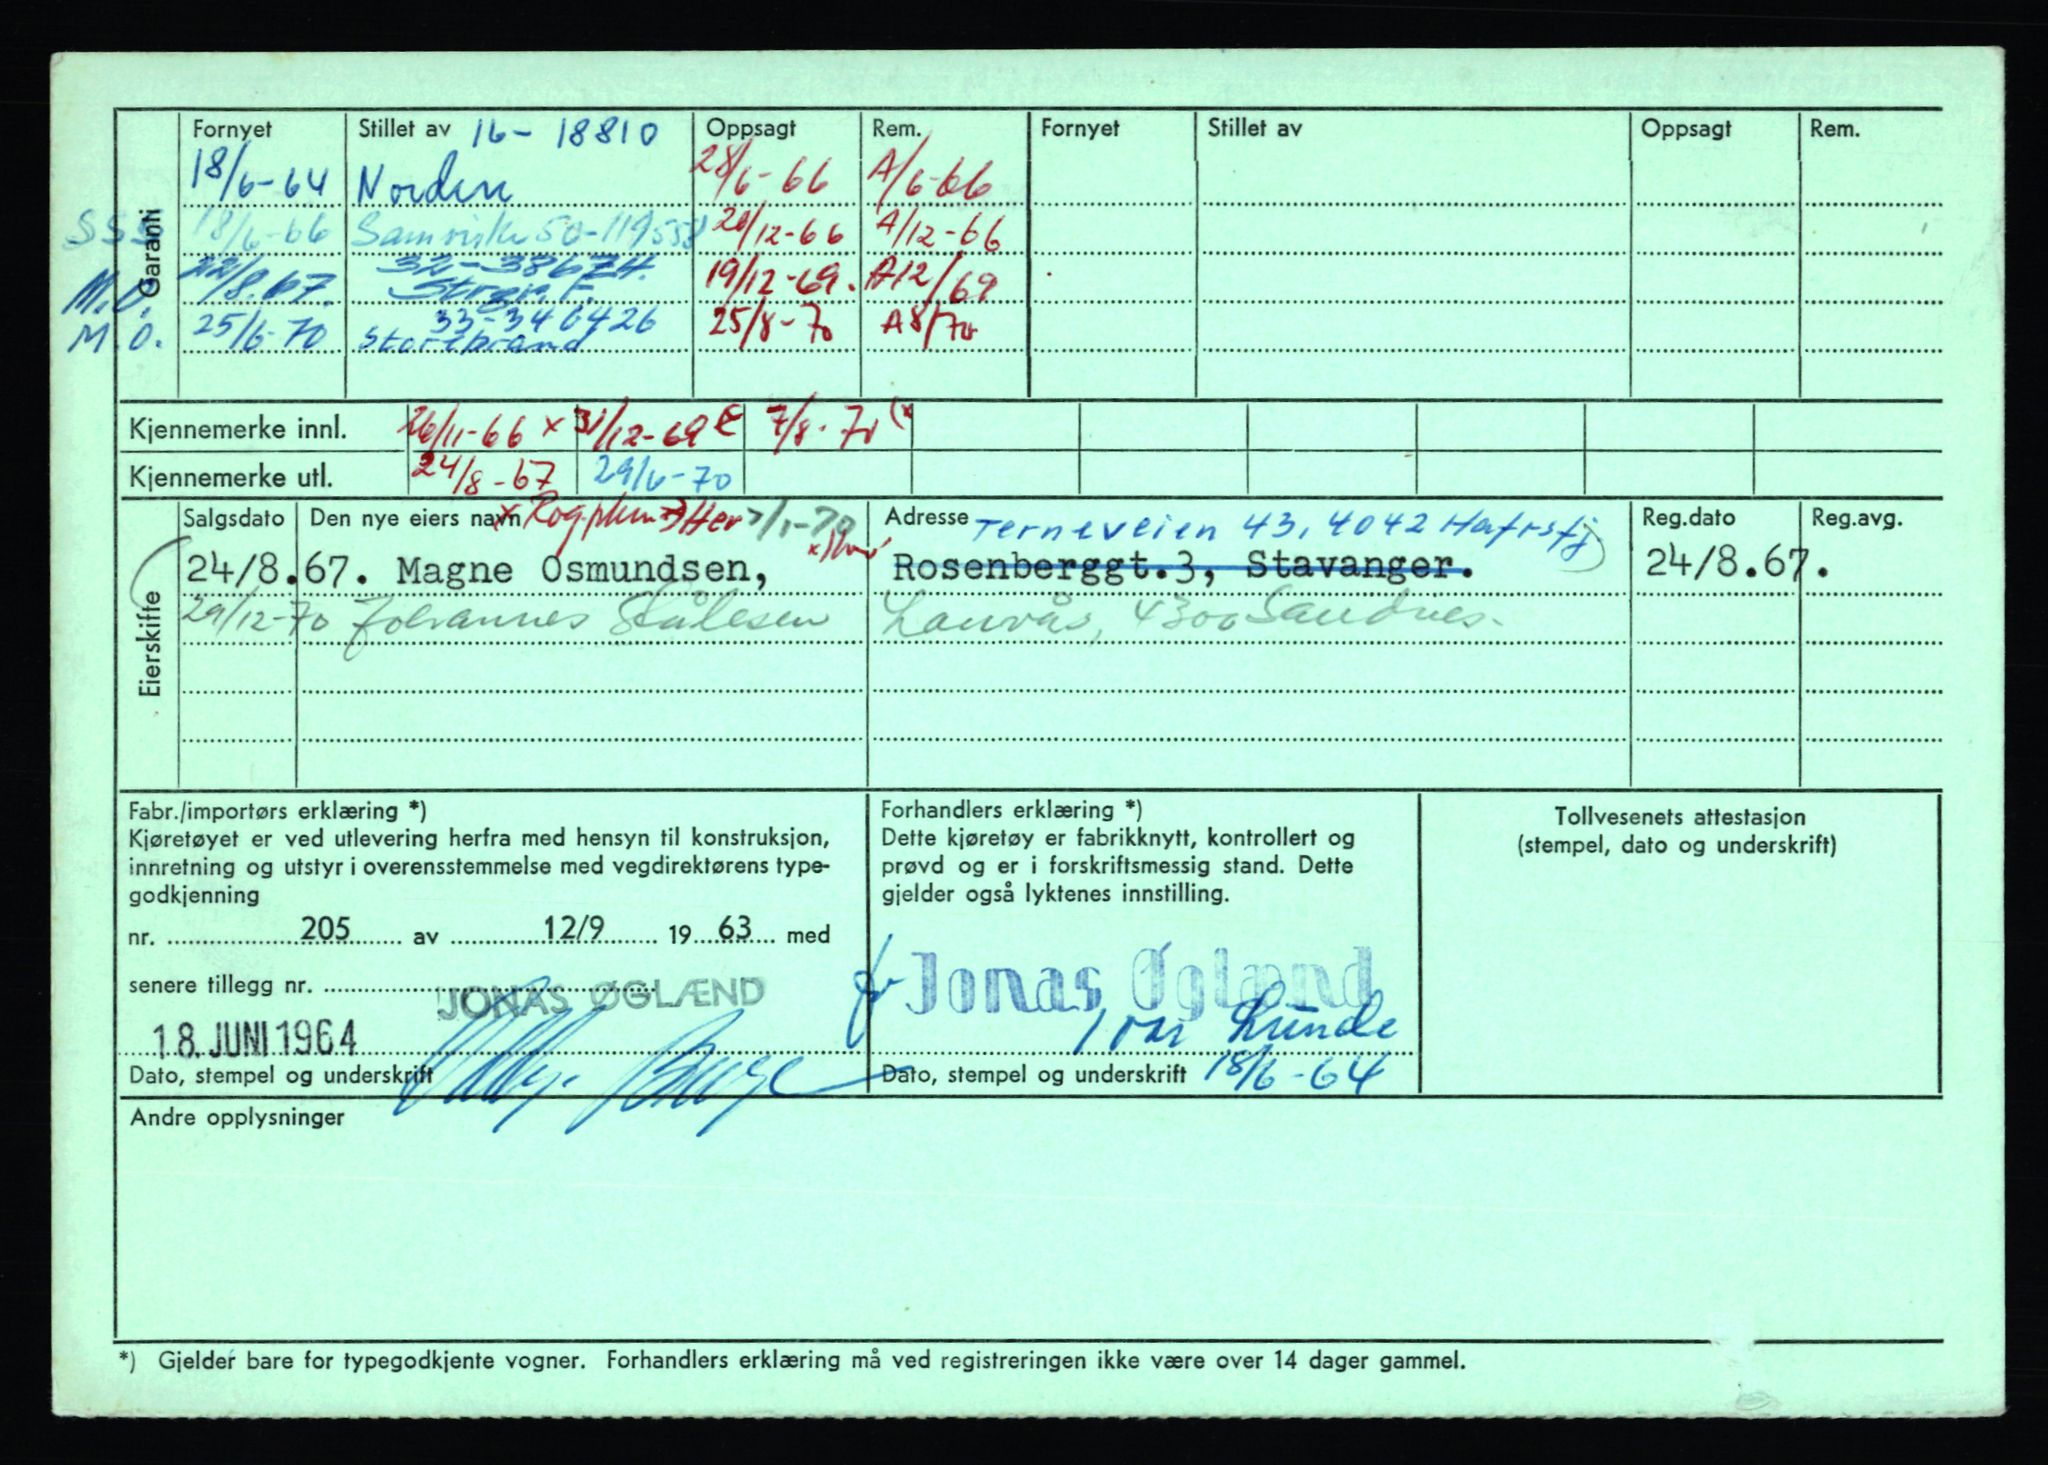 Garanti
Fornyet Stillet av 16-18810 Oppsagt Rem. Fornyet Stillet av Oppsagt Rem.
18/6-64 Norden 28/6-66 A/6-66
SSS 18/6-66 Samvirke 50-119558 20/12-66 A/12-66
M.O. 22/8.67. 32-38674. 19/12-69. A12/69
M.O. 25/6-70 33-346426 25/8-70 A8/70
Storebrand
Kjennemerke innl. 26/11-66 x 31/12-69 7/8-70
Kjennemerke utl. 24/8-67 29/6-70
Eierskifte
Salgsdato Den nye eiers navn Adresse Terneveien 43, 4042 Hafrsfj Reg.dato Reg.avg.
24/8.67. Magne Osmundsen, Rosenberggt.3, Stavanger. 24/8.67.
29/12-70 Johannes Stålesen Lauvås, 4300 Sandnes.
Fabr./importørs erklæring *)
Kjøretøyet er ved utlevering herfra med hensyn til konstruksjon,
innretning og utstyr i overensstemmelse med vegdirektørens type-
godkjenning
nr. 205 av 12/9 19 63 med
senere tillegg nr.
JONAS ØGLÆND
18. JUNI 1964
Dato, stempel og underskrift
Forhandlers erklæring *)
Dette kjøretøy er fabrikknytt, kontrollert og
prøvd og er i forskriftsmessig stand. Dette
gjelder også lyktenes innstilling.
Jonas Øglænd
Ivar Lunde
Dato, stempel og underskrift 18/6-64
Tollvesenets attestasjon
(stempel, dato og underskrift)
Andre opplysninger
*) Gjelder bare for typegodkjente vogner. Forhandlers erklæring må ved registreringen ikke være over 14 dager gammel.